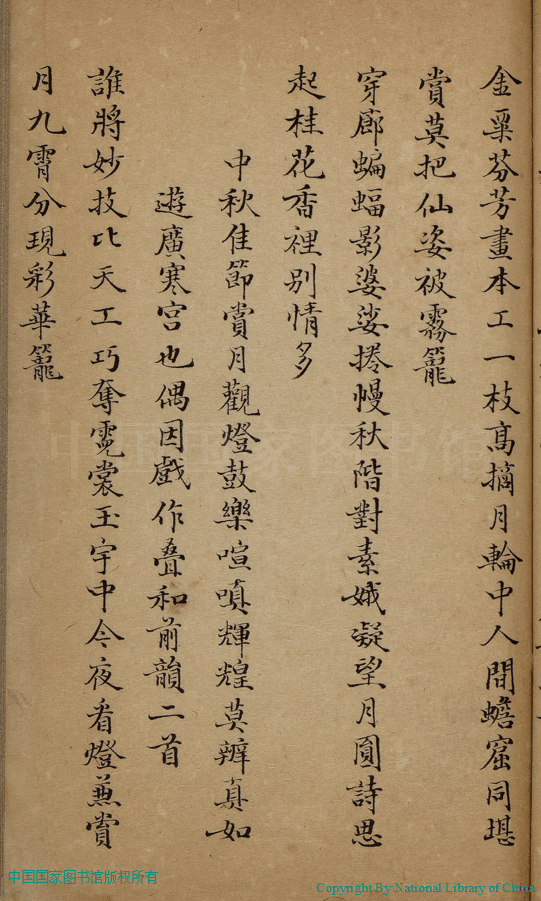 金粟芬芳畫本工一枝高摘月輪中人間蟾窟同堪
賞莫把仙姿被霧籠
穿廊蝙蝠影婆娑捲幔秋階對素娥凝望月圓詩思
起桂花香裡別情多
中秋佳節賞月觀燈鼓樂喧嗔輝煌莫辨真如
遊廣寒宮也偶因戲作疊和前韻二首
誰將妙技比天工巧奪霓裳玉宇中今夜看燈兼賞
月九霄分現彩華籠
中国国家图书馆
中国国家图书馆版权所有
Copyright By National Library of China